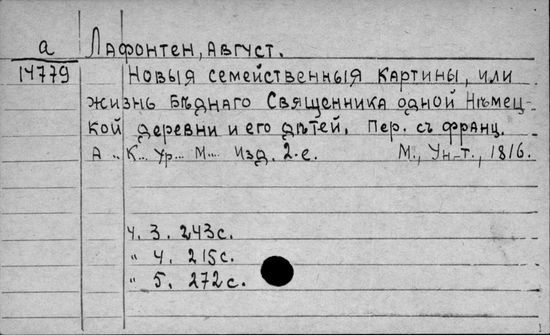 а Лафонтен, Август.
14779 Новыя семейственныя картины, или
жизнь бѣднаго Священника одной Нѣмец-
кой деревни и его дѣтей. Пер. съ франц.
А.. К... Ур... М... Изд. 2-е. М., Ун-т., 1816.
Ч. 3. 243с.
" 4. 215с.
" 5. 272с.